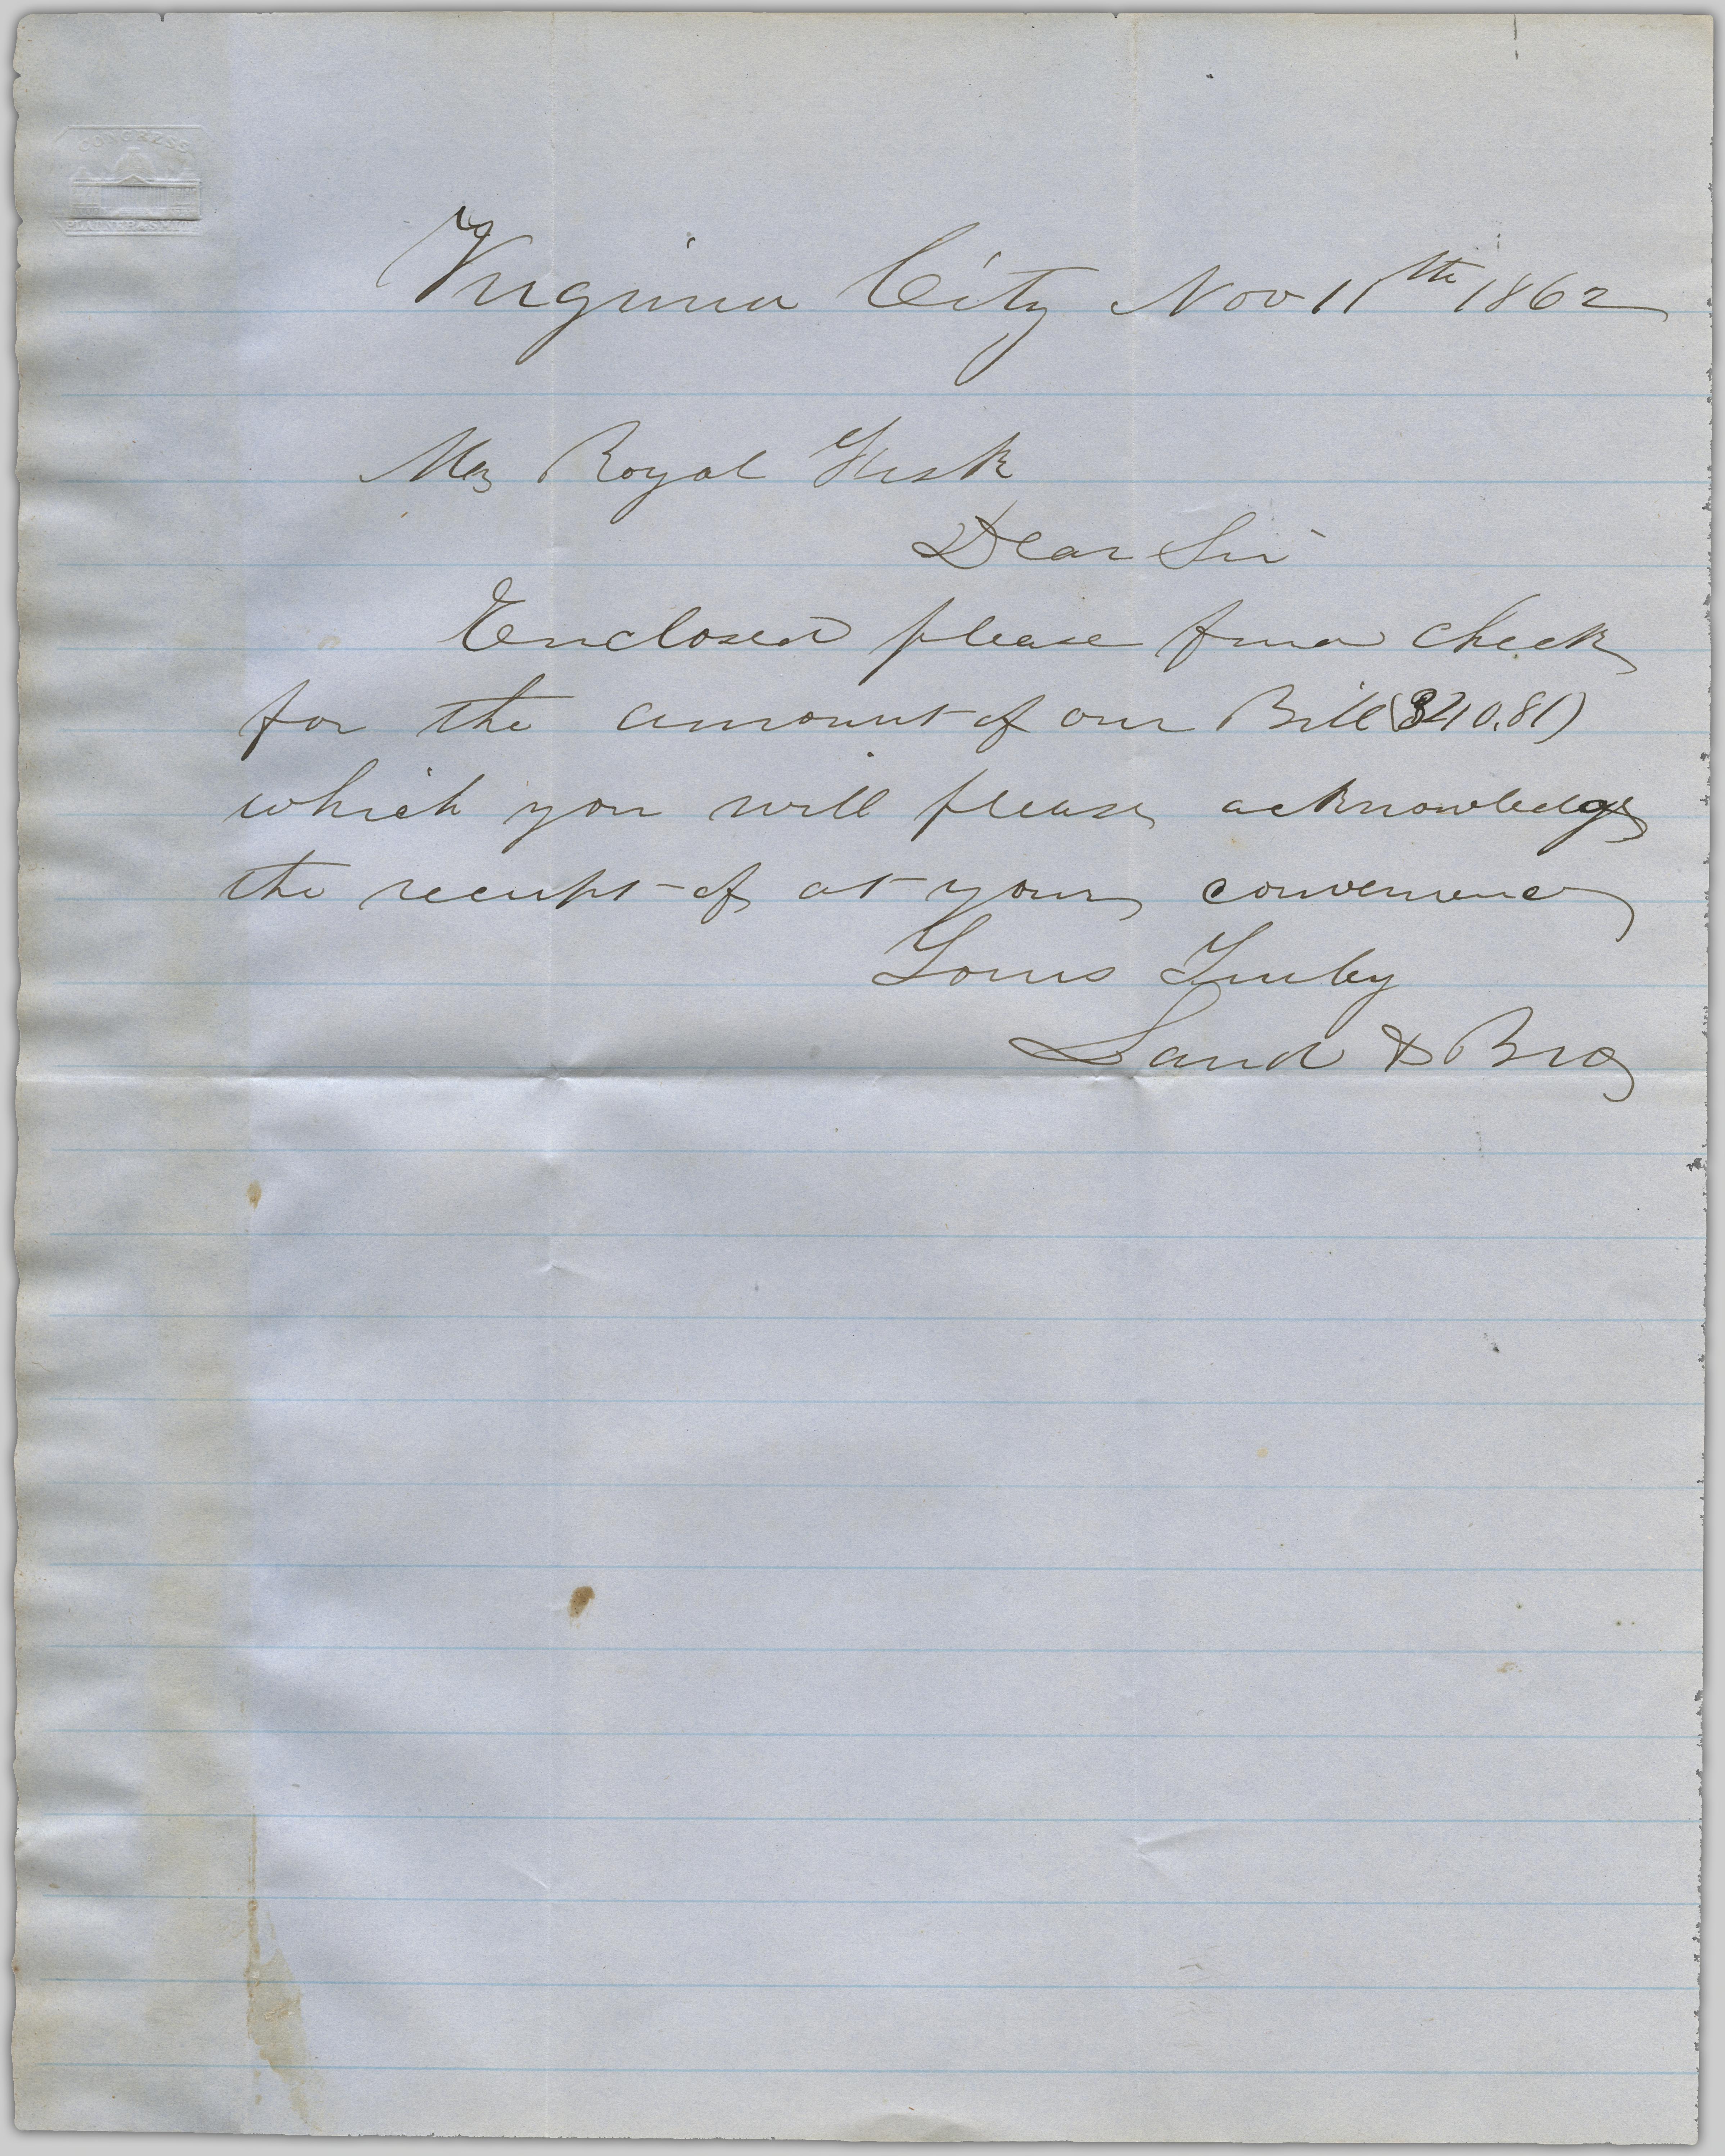 CONGRESS
Virginia City Nov 11th 1862
Mr Royal Fisk
Dear Sir
Enclosed please find check
for the amount of our Bill
which you will please acknowledge
the receipt of at your convenience
Yours Truly
Sand & Bro